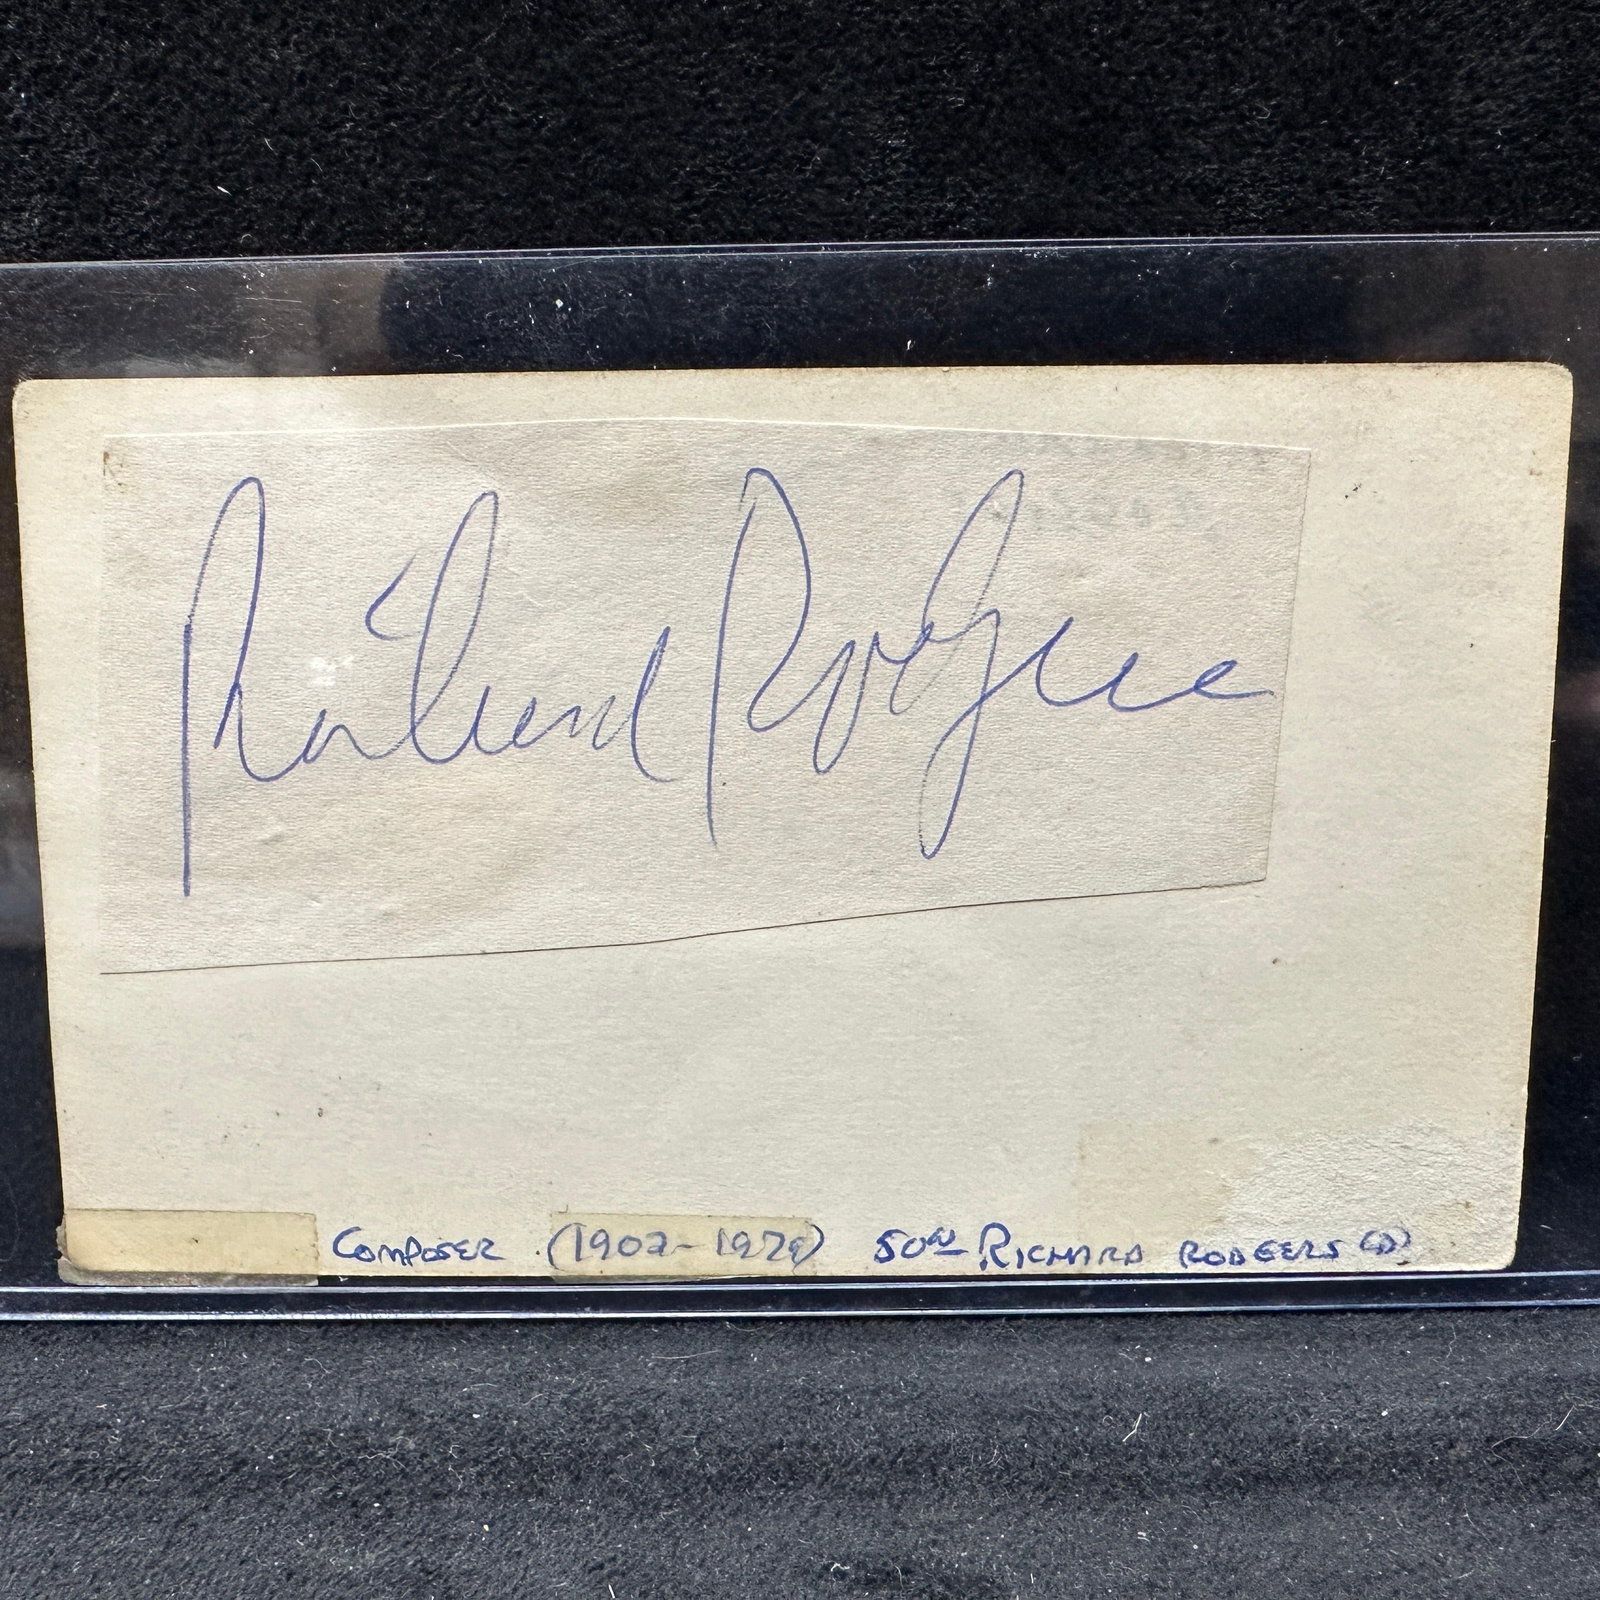 Richard Rodgers
COMPOSER (1902-1979) RICHARD RODGERS (D)